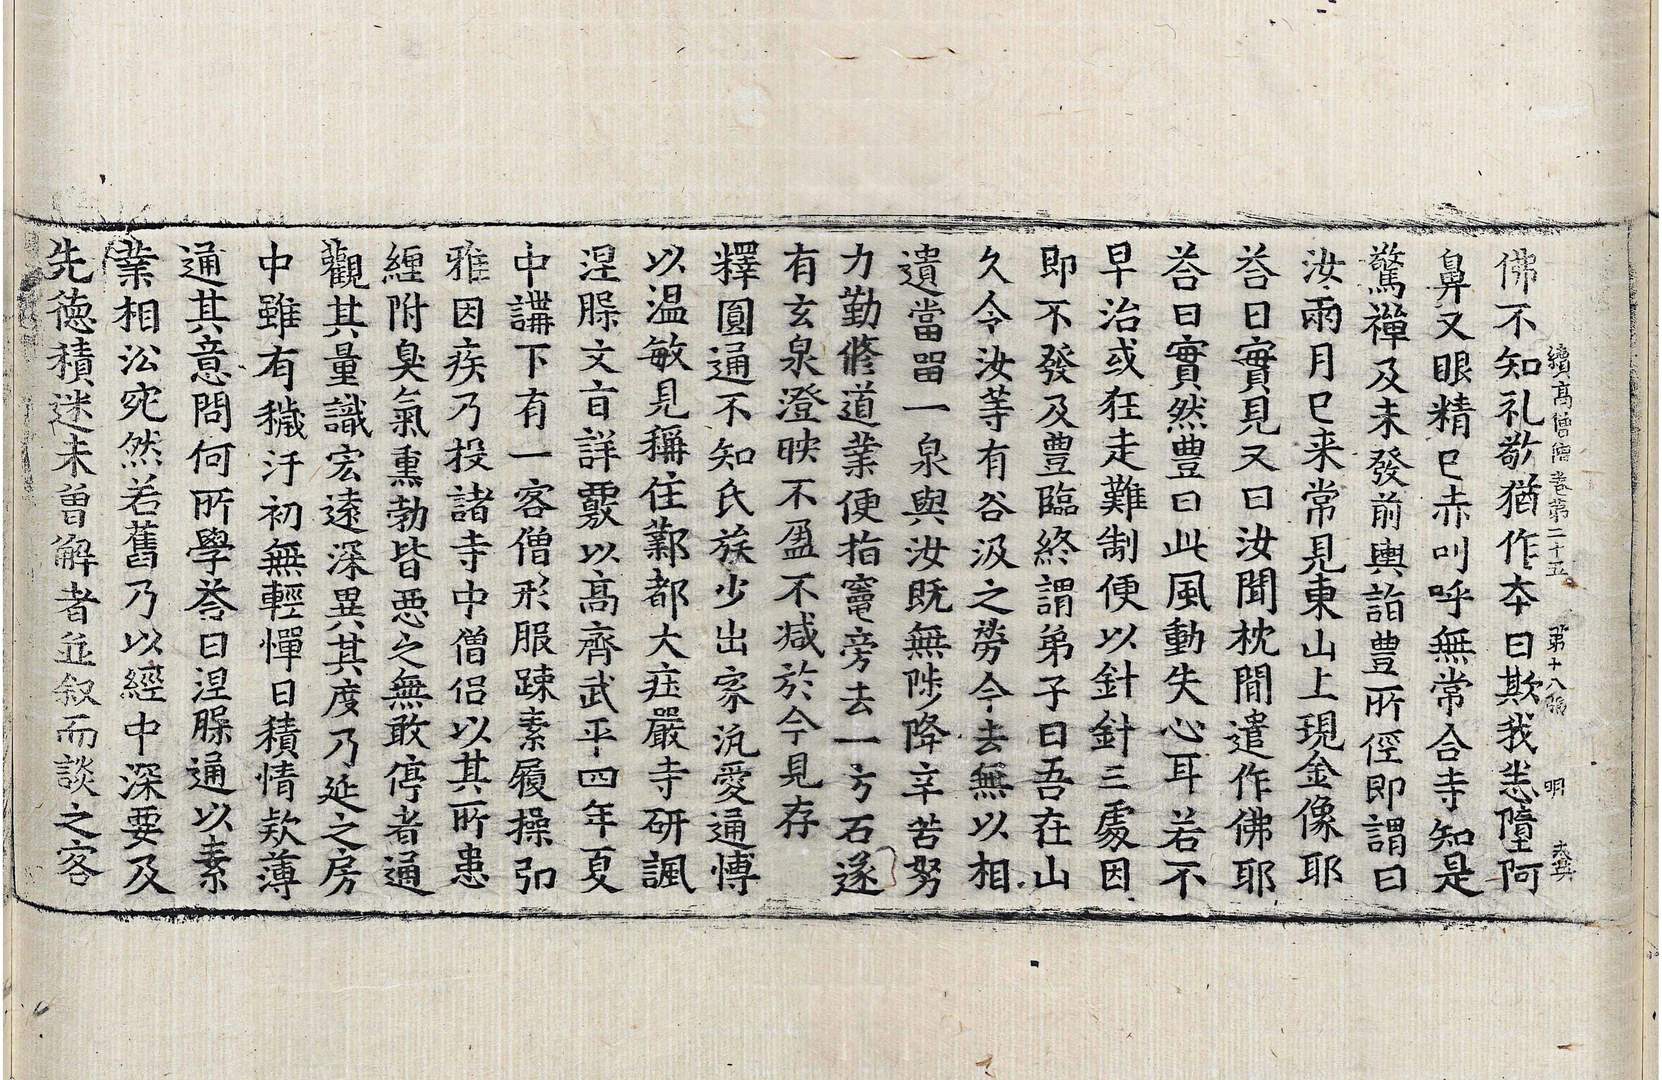 續高僧傳卷第二十五 第十八張 明
佛不知礼敬猶作夲曰欺我悉墮阿
鼻又眼精已赤叫呼無常合寺知是
驚禪及未發前輿詣豊所徑即謂曰
汝兩月已来常見東山上現金像耶
荅曰實見又曰汝聞枕閒遣作佛耶
荅曰實然豊曰此風動失心耳若不
早治或狂走難制便以針針三處因
即不發及豊臨終謂弟子曰吾在山
久令汝等有谷汲之勞今去無以相
遺當留一泉與汝既無陟降辛苦努
力勤修道業便指竈旁去一方石遂
有玄泉澄映不盈不減於今見存
釋圓通不知氏族少出家汎愛通博
以温敏見稱住鄴都大㽵嚴寺研諷
涅槃文旨詳覈以高齊武平四年夏
中講下有一客僧形服踈素履操弘
雅因疾乃投諸寺中僧侣以其所患
纏附臭氣熏勃皆恶之無敢停者通
觀其量識宏遠深異其度乃延之房
中雖有穢汙初無輕憚日積情欵薄
通其意問何所學荅曰涅槃通以素
業相訟宛然若舊乃以經中深要及
先德積迷未曾解者並叙而談之客